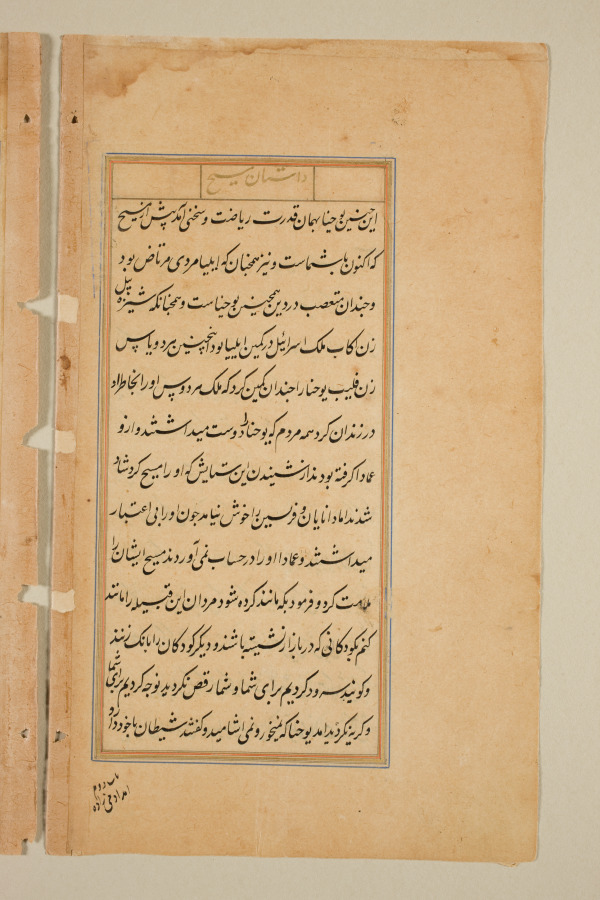 داستان مسیح
این چنین یوحنا بهمان قدرت ریاضت و سختی آمد پیش از مسیح
که اکنون با شماست و نیز همچنان که ایلیا مردی مرتاض بود
و چندان متعصب در دین همچنین یوحناست و همچنانکه شیزه پل
زن اکاب ملک اسرائیل در کمین ایلیا بود همچنین هردویاس
زن فلیب یوحنا را چندان کمین کرد که ملک هردوس او را بخاطر او
در زندان کرد همه مردم که یوحنا را دوست میداشتند و ازو
عمادا گرفته بودند از شنیدن این ستایش که او را مسیح کرد شاد
شدند اما دانایان و فریسین را خوش نیامد چون او را بی اعتبار
میداشتند و عمادا او را در حساب نمی آوردند مسیح ایشان را
ملامت کرد و فرمود بکه مانند کرده شود مردان این قبیله را مانند
کنم بکودکانی که در بازار نشسته باشند و دیگر کودکان را بانک زنند
و کویند سرود کردیم برای شما و شما رقص نکردید نوحه کردیم برای شما
و کریه نکردید آمد یوحنا که نمیخورد و نمی آشامید و کفتند شیطان با خود دارد